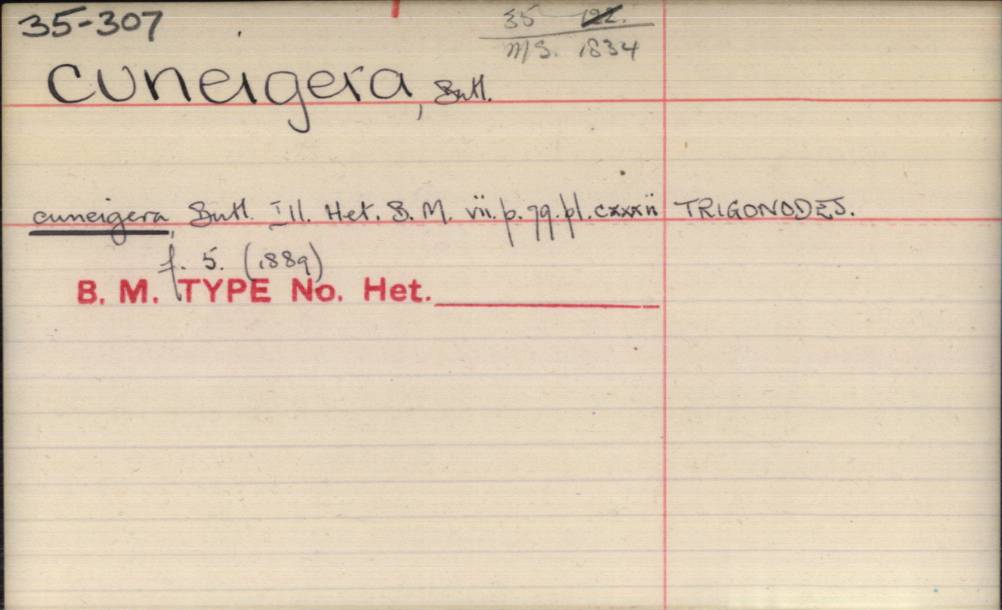 35-307
35 122.
M/S. 1834
cuneigera, Butl.
cuneigera, Butl. Ill. Het. B. M. vii. p. 99. pl. cxxxii TRIGONODES.
f. 5. (1889)
B. M. TYPE No. Het.